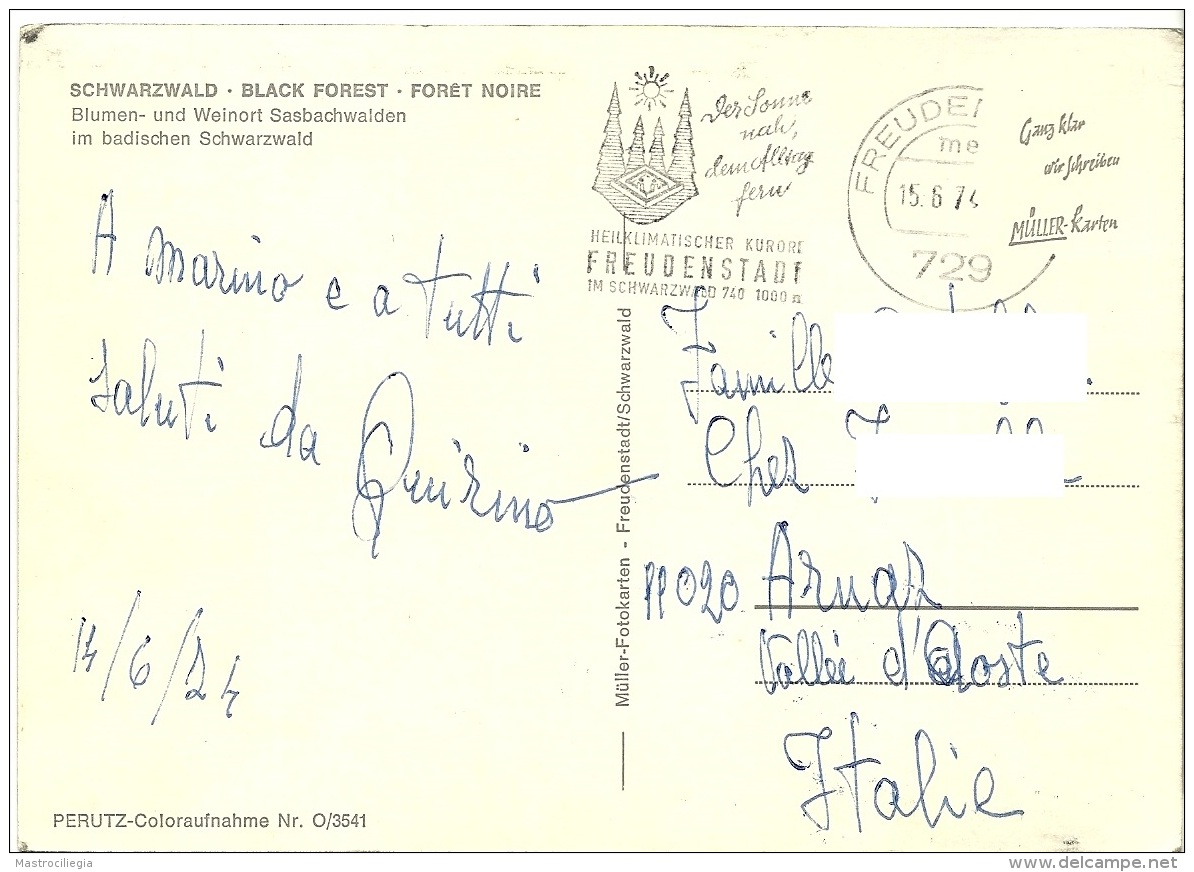 SCHWARZWALD · BLACK FOREST · FORÊT NOIRE
Blumen- und Weinort Sasbachwalden
im badischen Schwarzwald
A Marino e a tutti
saluti da
Quirino
14/6/74
PERUTZ-Coloraufnahme Nr. O/3541
Müller-Fotokarten - Freudenstadt/Schwarzwald
Der Sonne
nah,
dem Alltag
fern
HEILKLIMATISCHER KURORT
FREUDENSTADT
IM SCHWARZWALD 740 1000 m
FREUDEN
me
15.6.74
729
Ganz klar
wir schreiben
MÜLLER-Karten
Famille
Chez
11020 Arnaz
Vallée d'Aoste
Italie
Mastrociliegia
delcampe.net